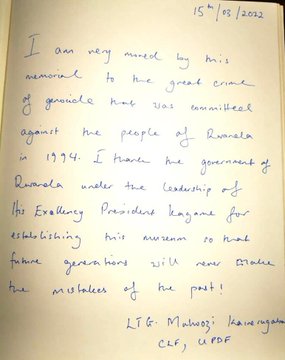 15th/03/2022
I am very moved by this
memorial to the great crime
of genocide that was committed
against the people of Rwanda
in 1994. I thank the government of
Rwanda under the leadership of
His Excellency President Kagame for
establishing this museum so that
future generations will never make
the mistakes of the past!
LTG. Muhoozi Kainerugaba
CLF, UPDF